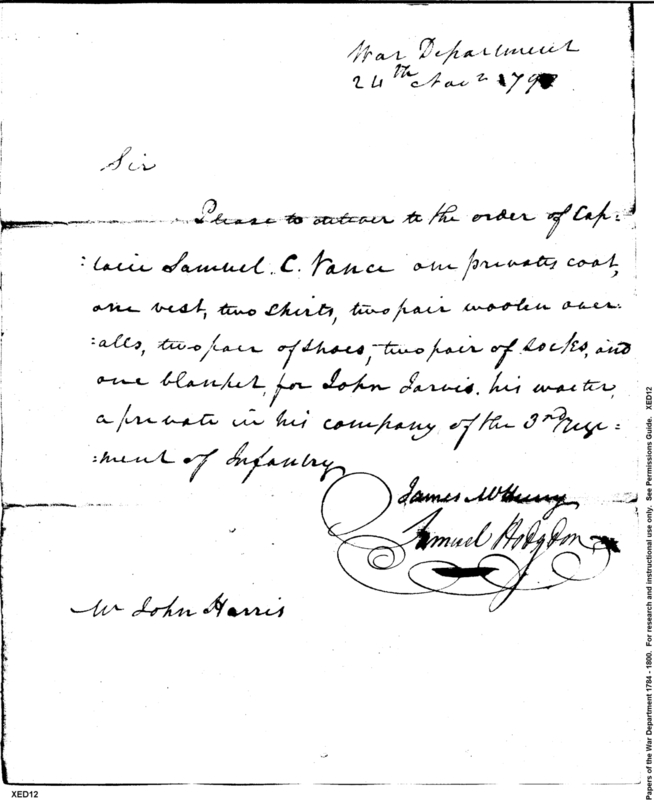 War Department
24th Novr 179
Sir
Please to deliver to the order of Cap:
:tain Samuel C. Vance one privates coat,
one vest, two shirts, two pair woolen over:
:alls, two pair of shoes, two pair of socks, and
one blanket, for John Jarvis. his waiter,
a private in his company of the 3rd Regi:
:ment of Infantry
James McHenry
Samuel Hodgdon
Mr John Harris
XED12
Papers of the War Department 1784 - 1800. For research and instructional use only. See Permissions Guide. XED12